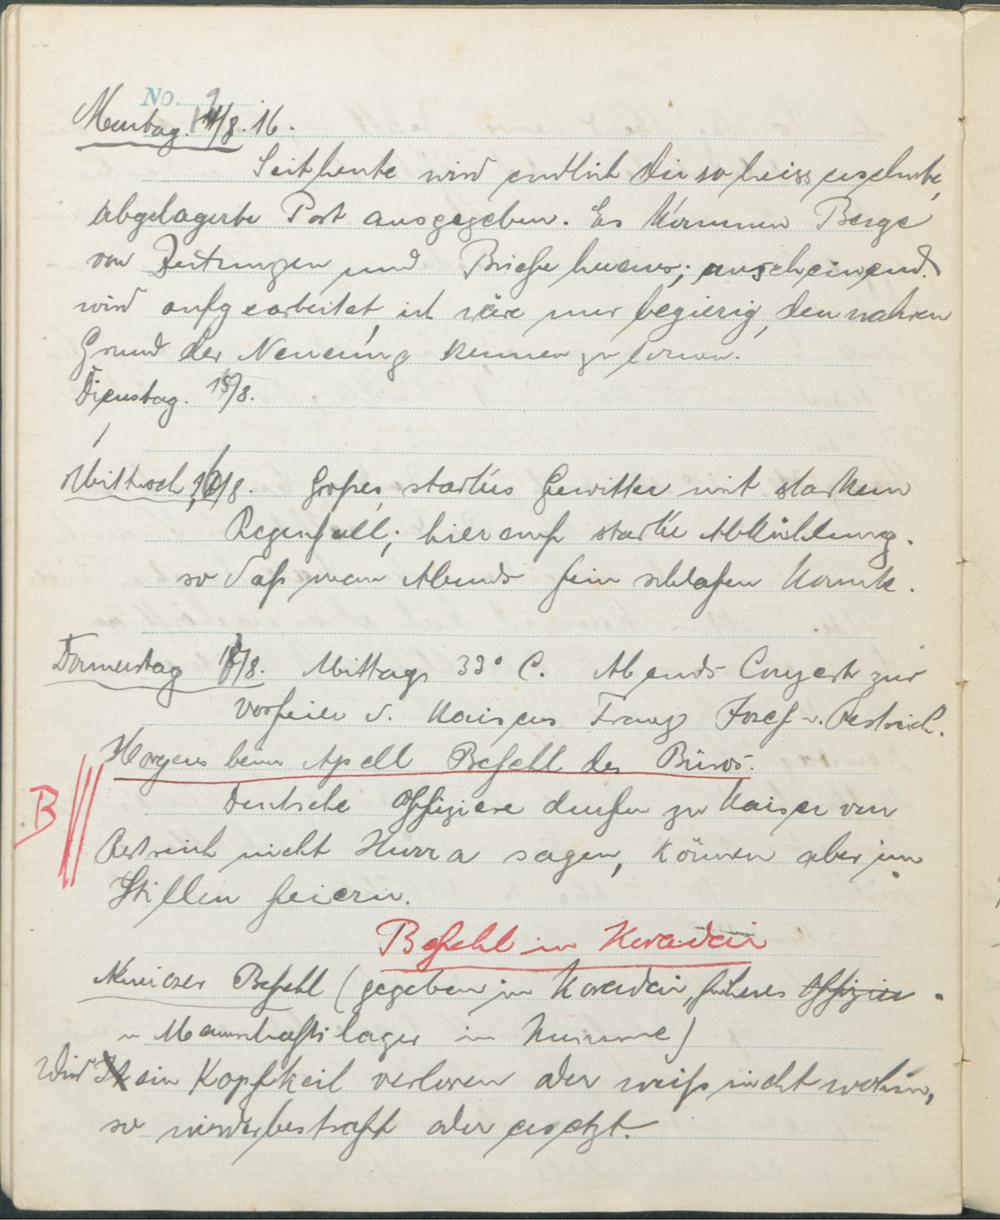 No. 9
Montag. 14/8. 16.
Seit heute wird endlich die so heiss ersehnte,
abgelagerte Post ausgegeben. Es kommen Berge
von Zeitungen und Briefe heraus; anscheinend
wird aufgearbeitet, ich wäre nur begierig, den wahren
Grund der Neuerung kennen zu lernen.
Dienstag. 15/8.
Mittwoch, 16/8. Großes, starkes Gewitter mit starkem
Regenfall; hierauf starke Abkühlung.
so daß man Abends fein schlafen konnte.
Donnerstag 17/8. Mittags 33° C. Abends Conzert zur
Vorfeier d. Kaisers Franz Josef v. Östreich.
Morgens beim Apell Befehl des Büros.
B
Deutsche Offiziere durfen zu Kaiser von
Östreich nicht Hurra sagen, können aber im
Stillen feiern.
Befehl in Kovadair
Befehl (gegeben in Kovadair, früheres Offizier
u Mannschaftslager in )
Wird ein Kopfkeil verloren oder weiß nicht wohin,
so wird er bestraft oder ersetzt.